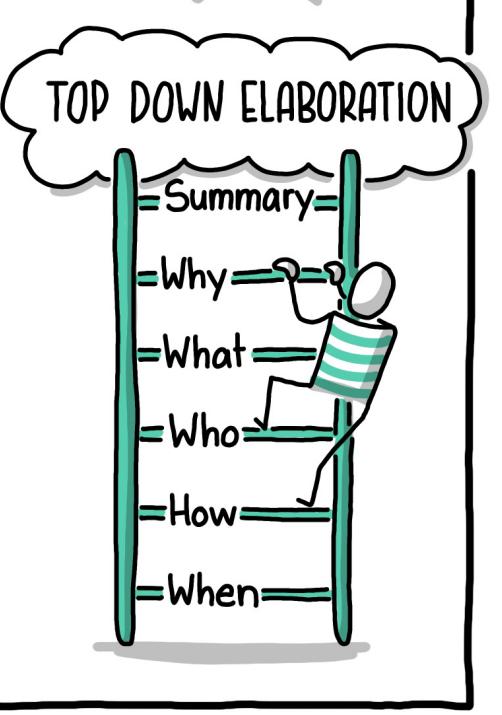 TOP DOWN ELABORATION
Summary
Why
What
Who
How
When